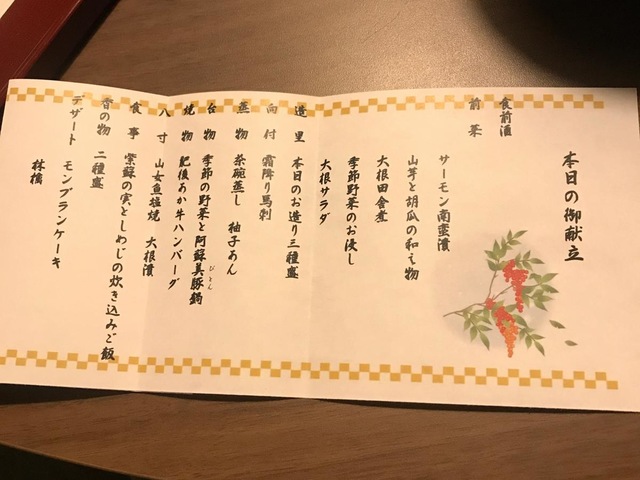 本日の御献立
食前酒
前菜
サーモン南蛮漬
山芋と胡瓜の和え物
大根田舎煮
季節野菜のお浸し
大根サラダ
造里 本日のお造り三種盛
向付 霜降り馬刺
蒸物 茶碗蒸し 柚子あん
台物 季節の野菜と阿蘇美豚鍋
びとん
焼物 肥後あか牛ハンバーグ
八寸 山女魚塩焼 大根漬
食事 紫蘇の実としめじの炊き込みご飯
香の物 二種盛
デザート モンブランケーキ
林檎